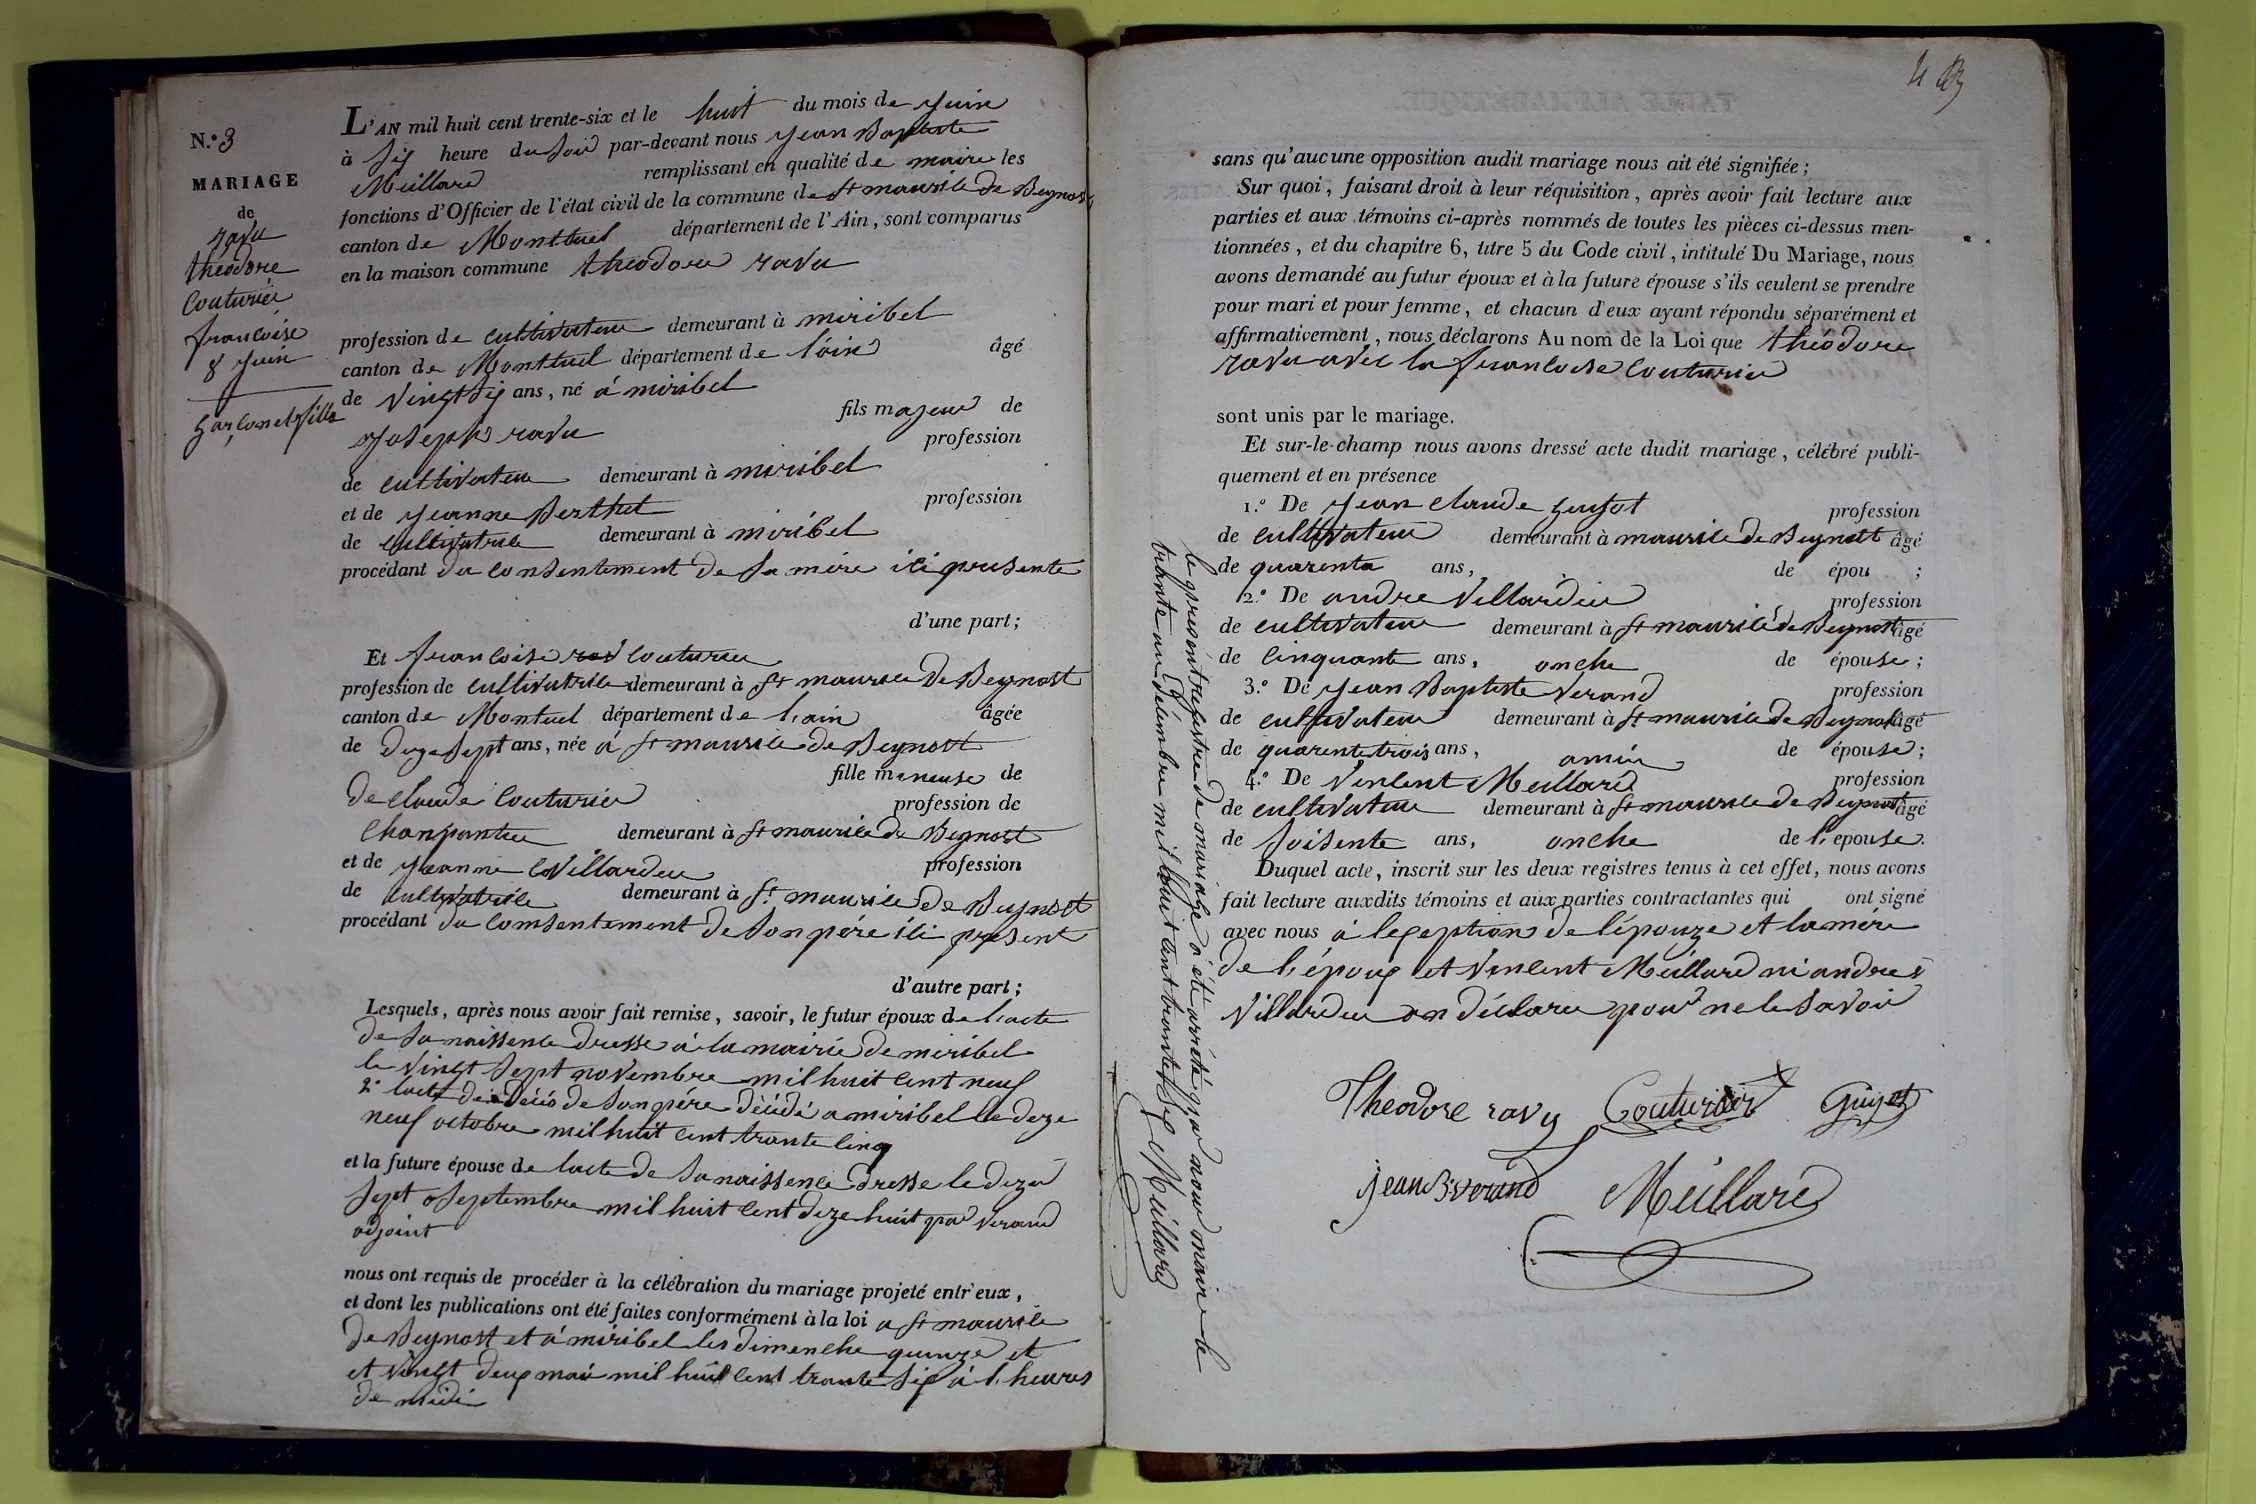 N.º 3
MARIAGE
de
ravu
théodore
Couturier
francoise
8 Juin
garçon et fille
L'AN mil huit cent trente-six et le huit du mois de Juin
à six heure du soir par-devant nous Jean Baptiste
Meillard remplissant en qualité de maire les
fonctions d'Officier de l'état civil de la commune de St maurice de Beynost
canton de Montluel département de l'Ain, sont comparus
en la maison commune théodore ravu
profession de cultivateur demeurant à miribel
canton de Montluel département de l'ain âgé
de vingt six ans, né à miribel
fils majeur de
Joseph ravu profession
de cultivateur demeurant à miribel
et de Jeanne Berthet profession
de cultivatrice demeurant à miribel
procédant du consentement de sa mère ici presente
d'une part;
Et francoise couturier
profession de cultivatrice demeurant à St maurice de Beynost
canton de Montuel département de l'ain âgée
de dyze sept ans, née à St maurice de Beynost
fille mineuse de
de claude couturier profession de
charpantier demeurant à St maurice de Beynost
et de Jeanne Villardieu profession
de cultivatrice demeurant à St maurice de Beynost
procédant du comsentement de son père ici present
d'autre part;
Lesquels, après nous avoir fait remise, savoir, le futur époux de l'acte
de sa naissence dresse à la mairie de meribel
le vingt sept novembre mil huit cent neuf
2º lacte de décès de son père décédé a miribel le dize
neuf octobre mil huit cent trante cinq
et la future épouse de lacte de sa naissence dresse le dize
sept septembre mil huit cent dize huit par verand
adjoint
nous ont requis de procéder à la célébration du mariage projeté entr'eux,
et dont les publications ont été faites conformément à la loi a St maurice
de Beynost et à miribel les dimenche quinze et
et vingt deux mai mil huit cent trante six à l'heures
de midi
sans qu'aucune opposition audit mariage nous ait été signifiée;
Sur quoi, faisant droit à leur réquisition, après avoir fait lecture aux
parties et aux témoins ci-après nommés de toutes les pièces ci-dessus men-
tionnées, et du chapitre 6, titre 5 du Code civil, intitulé Du Mariage, nous
avons demandé au futur époux et à la future épouse s'ils veulent se prendre
pour mari et pour femme, et chacun d'eux ayant répondu séparément et
affirmativement, nous déclarons Au nom de la Loi que théodore
ravu avec la francoise couturier
sont unis par le mariage.
Et sur-le-champ nous avons dressé acte dudit mariage, célébré publi-
quement et en présence
1.º De Jean claude guyot profession
de cultivateur demeurant à maurice de Beynost âgé
de quarente ans, de épou ;
2.º De andre Villardieu profession
de cultivateur demeurant à St maurice de Beynost âgé
de cinquante ans, oncle de épouse;
3.º De Jean Baptiste Verand profession
de cultivateur demeurant à St maurice de Beynost âgé
de quarente trois ans, amis de épouse;
4.º De Vincent Meillard profession
de cultivateur demeurant à St maurice de Beynost âgé
de soisente ans, oncle de l'epouse.
Duquel acte, inscrit sur les deux registres tenus à cet effet, nous avons
fait lecture auxdits témoins et aux parties contractantes qui ont signé
avec nous à l'exeption de l'épouze et la mère
de l'époux et Vincent Meillard ni andre
Villardieu on déclare pour ne le savoir
Theodore ravy Couturier Guyot
jean B. verand Meillard
le present registre de mariage a été arrété par nous maire le
trante un décembre mil huit cent trante six Meillard